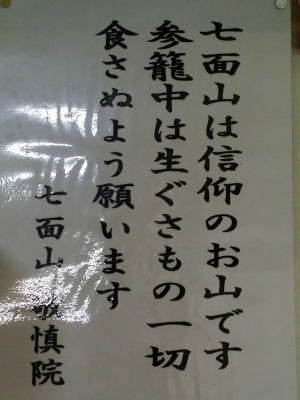 七面山は信仰のお山です
参籠中は生ぐさもの一切
食さぬよう願います
七面山 敬慎院